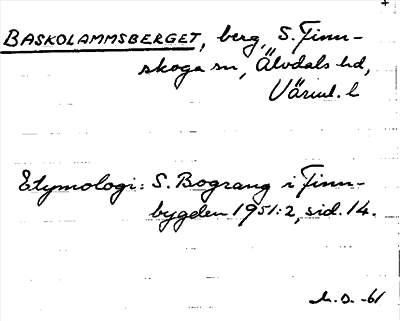 BASKOLAMMSBERGET, berg, S. Finn-
skoga sn, Älvdals hd,
Värml. l
Etymologi: S. Bograng i Finn-
bygden 1951:2, sid. 14.
-61